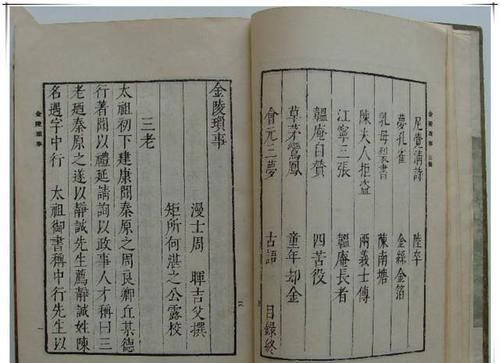 尼覺清詩 陸卒
夢孔雀 金絲金箔
乳母裂書 陳南塘
陳夫人拒盜 兩義士傳
江寧三張 韞庵長者
韞庵自贊 四苦役
草茅鸞鳳 童年却金
會元三夢 古語 目錄終
金陵瑣事
漫士周 暉吉父撰
矩所何湛之公露校
三老
太祖初下建康聞秦原之周良卿丘某德
行著聞以禮延請詢以政事人才稱曰三
老廼秦原之遂以靜誠先生薦靜誠姓陳
名遇字中行 太祖御書稱中行先生以
金陵瑣事